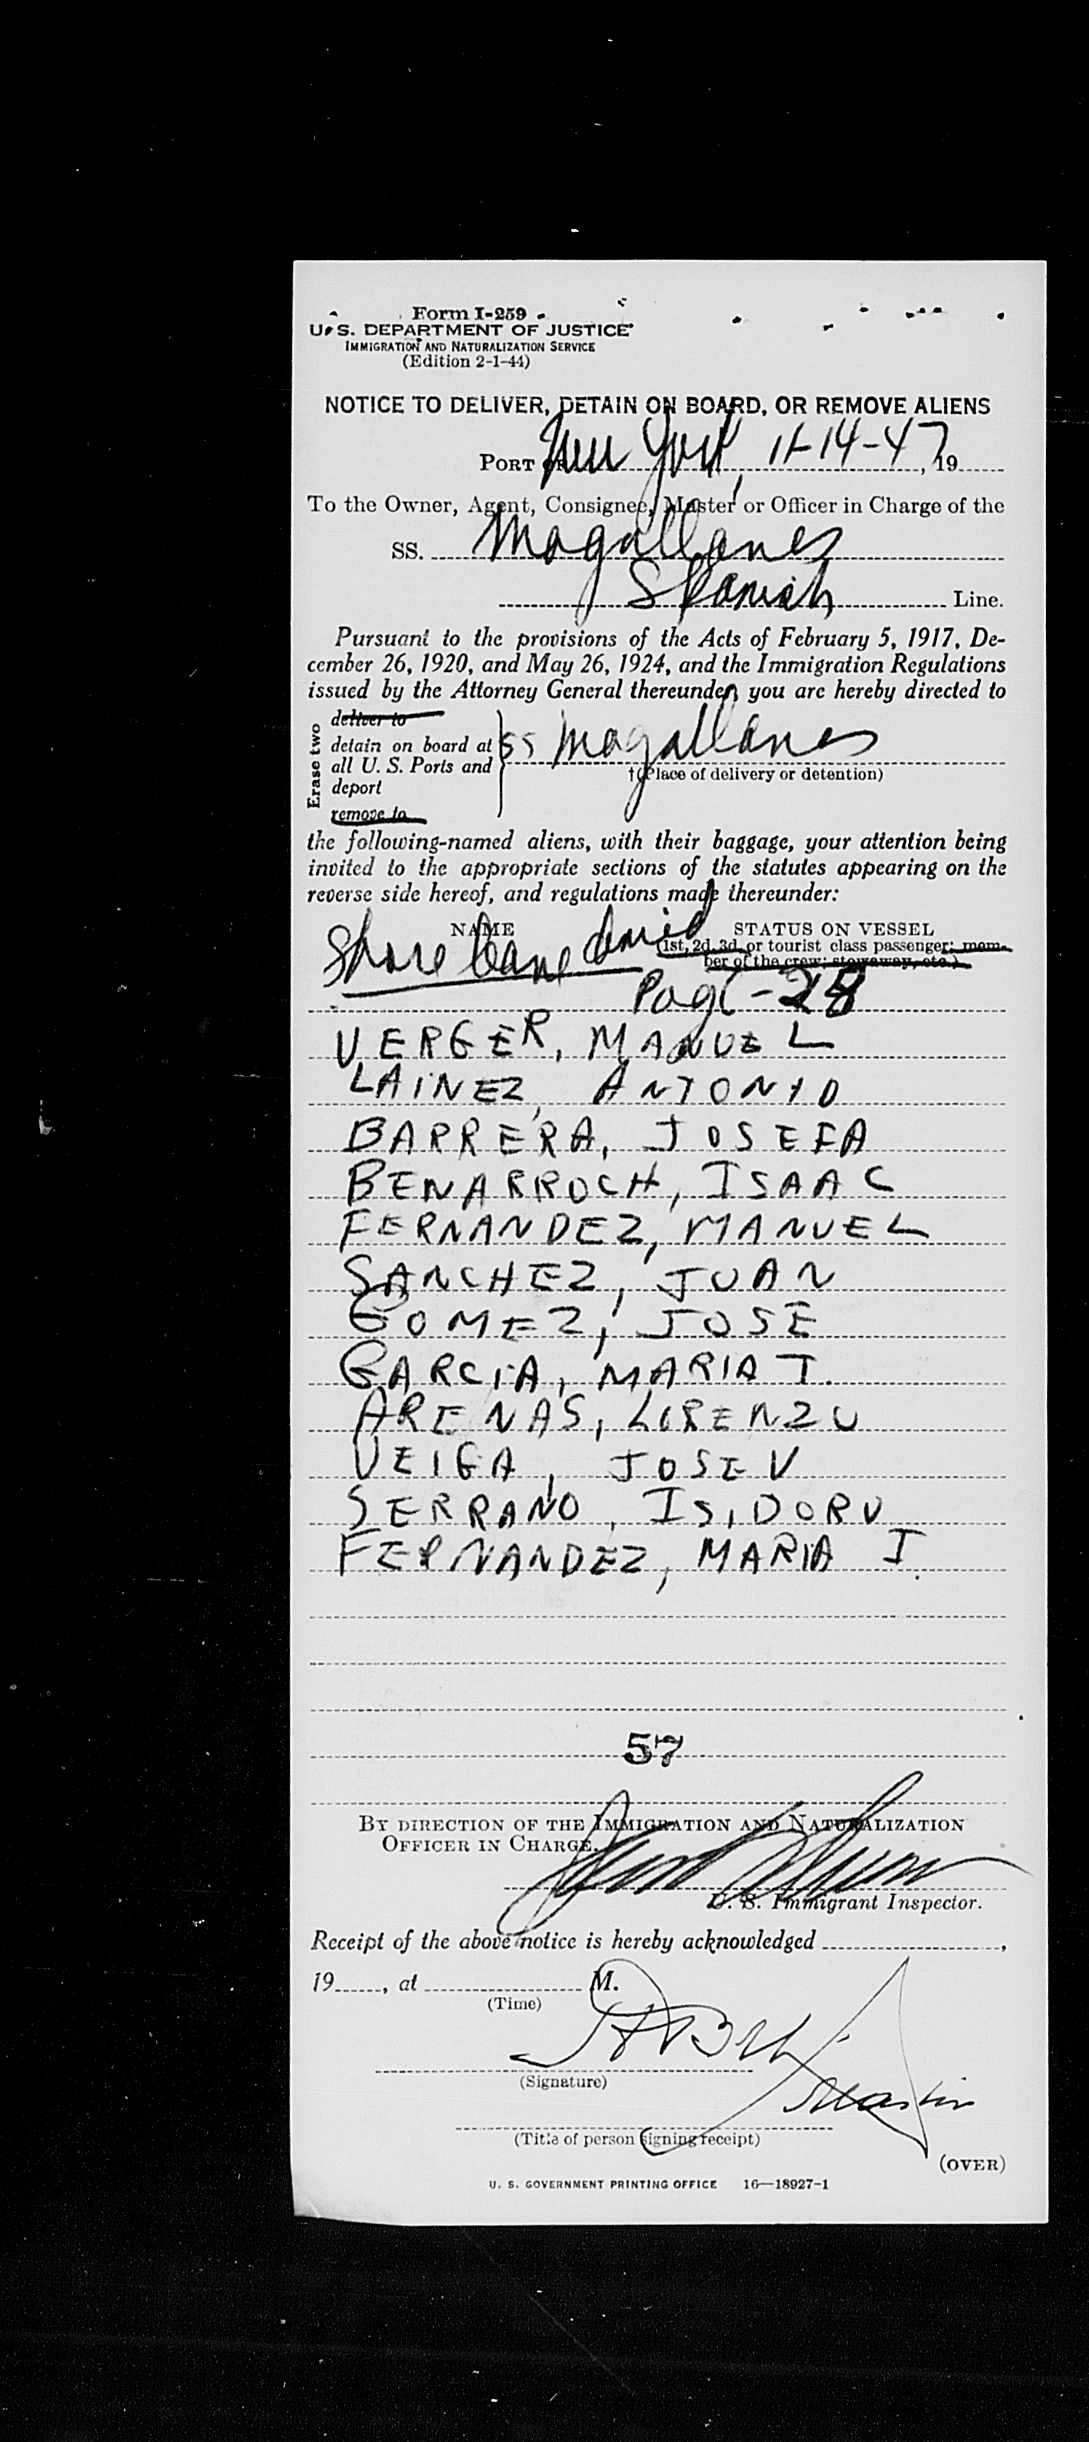 Form I-259
U. S. DEPARTMENT OF JUSTICE
IMMIGRATION AND NATURALIZATION SERVICE
(Edition 2-1-44)
NOTICE TO DELIVER, DETAIN ON BOARD, OR REMOVE ALIENS
PORT OF New York, 11-14-47, 19
To the Owner, Agent, Consignee, Master or Officer in Charge of the
SS. Magallanes
Spanish Line.
Pursuant to the provisions of the Acts of February 5, 1917, De-
cember 26, 1920, and May 26, 1924, and the Immigration Regulations
issued by the Attorney General thereunder, you are hereby directed to
Erase two
deliver to
detain on board at
all U. S. Ports and
deport
remove to
SS Magallanes
†(Place of delivery or detention)
the following-named aliens, with their baggage, your attention being
invited to the appropriate sections of the statutes appearing on the
reverse side hereof, and regulations made thereunder:
NAME
STATUS ON VESSEL
(1st, 2d, 3d, or tourist class passenger; mem-
ber of the crew; stowaway, etc.)
Shore leave denied
Page - 28
VERGER, MANUEL
LAINEZ, ANTONIO
BARRERA, JOSEFA
BENARROCH, ISAAC
FERNANDEZ, MANUEL
SANCHEZ, JUAN
GOMEZ, JOSE
GARCIA, MARIA T.
ARENAS, LORENZO
VEIGA, JOSE V
SERRANO, ISIDORO
FERNANDEZ, MARIA I.
57
BY DIRECTION OF THE IMMIGRATION AND NATURALIZATION
OFFICER IN CHARGE.
U. S. Immigrant Inspector.
Receipt of the above notice is hereby acknowledged ,
19 , at M.
(Time)
(Signature)
(Title of person signing receipt)
(OVER)
U. S. GOVERNMENT PRINTING OFFICE 16—18927-1